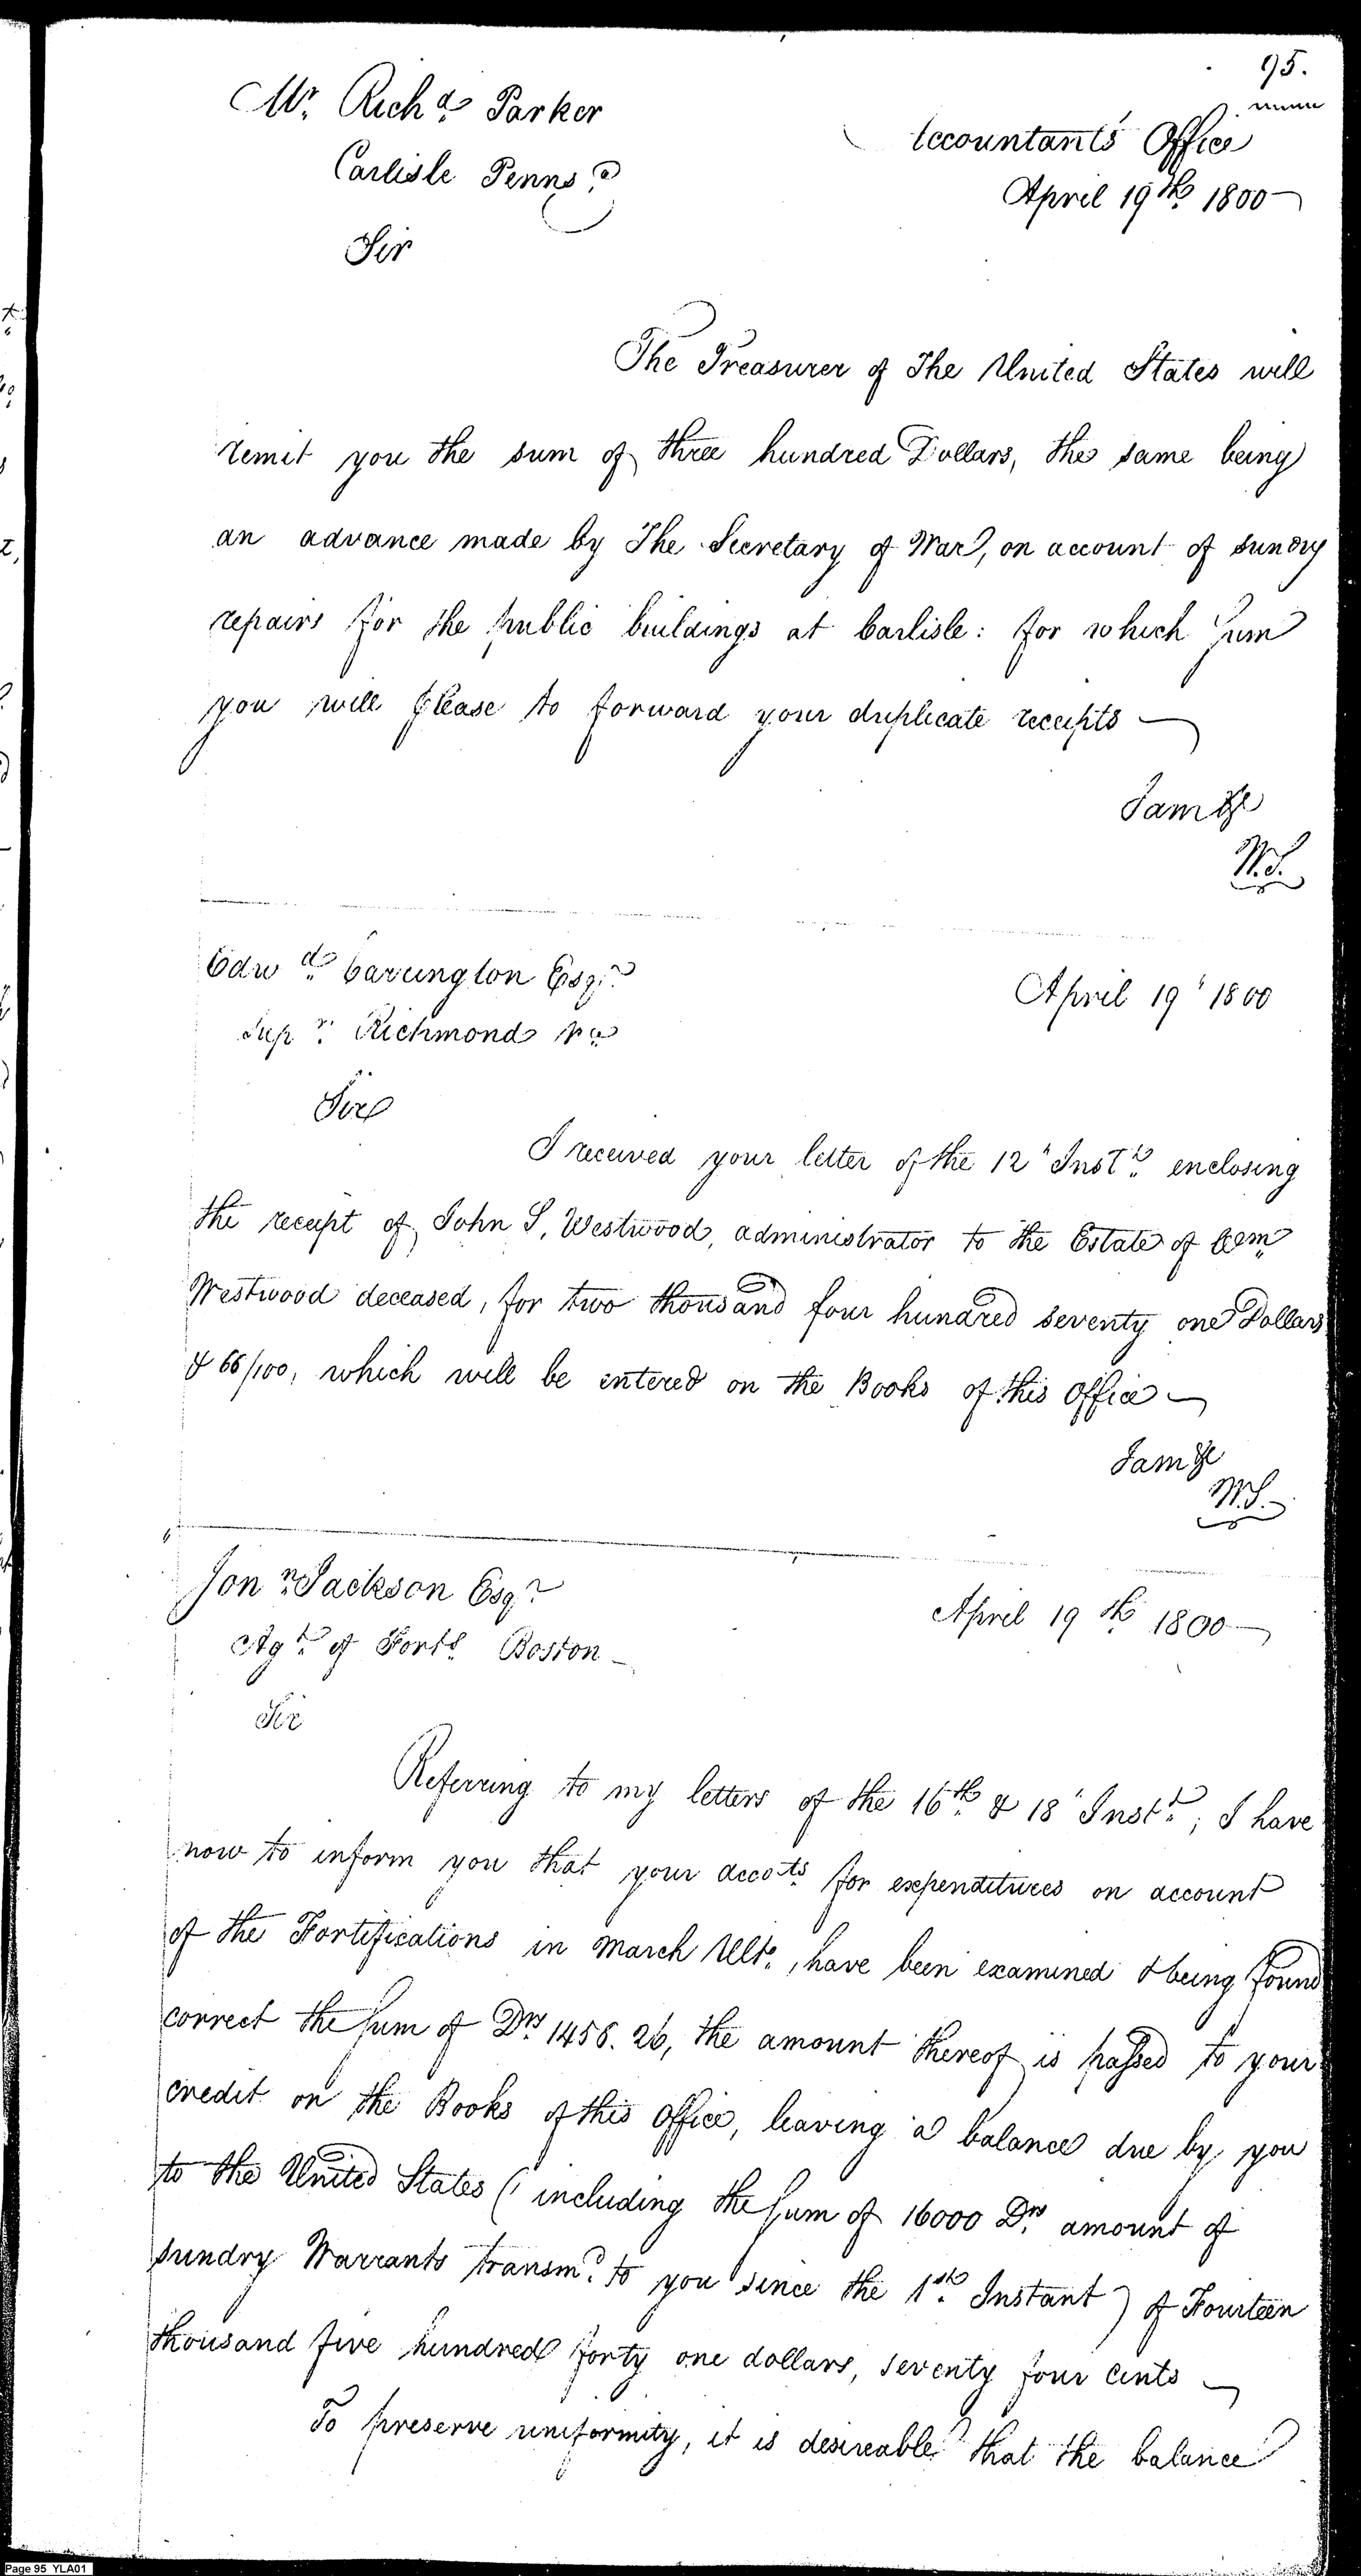 95.
Mr. Richd. Parker
Accountants Office
Carlisle Pennsa.
April 19th. 1800
Sir
The Treasurer of The United States will
remit you the sum of three hundred Dollars, the same being
an advance made by The Secretary of War, on account of sundry
repairs for the public buildings at Carlisle: for which sum
you will please to forward your duplicate receipts
I am &c
W.S.
Edwd. Carrington Esqr.
April 19" 1800
Supr. Richmond Va
Sir
I received your letter of the 12" Instt. enclosing
the receipt of John S. Westwood, administrator to the Estate of
Westwood deceased, for two thousand four hundred seventy one Dollars
& 66/100, which will be entered on the Books of this Office
I am &c
W.S.
Jonn. Jackson Esqr
April 19th 1800
Agt. of Forts. Boston
Sir
Referring to my letters of the 16th. & 18" Instt.; I have
now to inform you that your accots. for expenditures on account
of the Fortifications in March Ulto., have been examined & being found
correct the sum of Drs 1458.26, the amount thereof is passed to your
credit on the Books of this Office, leaving a balance due by you
to the United States (including the sum of 16000 Drs. amount of
sundry Warrants transmd. to you since the 1st. Instant) of Fourteen
thousand five hundred forty one dollars, seventy four cents
To preserve uniformity, it is desireable that the balance
Page 95 YLA01